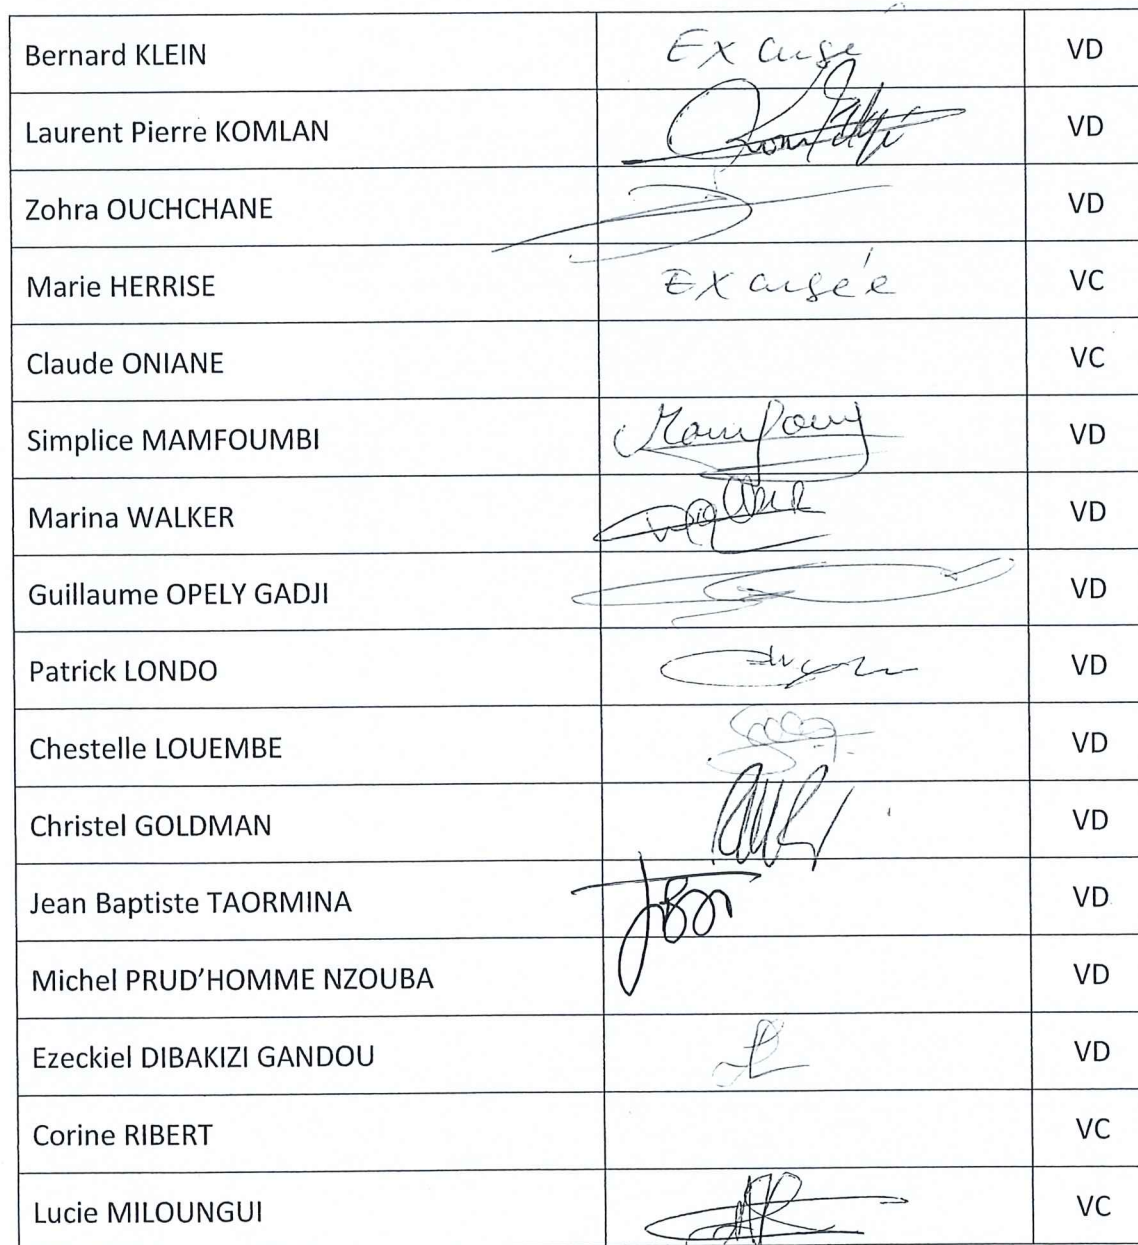 Bernard KLEIN Excusé VD
Laurent Pierre KOMLAN VD
Zohra OUCHCHANE VD
Marie HERRISE Excusée VC
Claude ONIANE VC
Simplice MAMFOUMBI VD
Marina WALKER VD
Guillaume OPELY GADJI VD
Patrick LONDO VD
Chestelle LOUEMBE VD
Christel GOLDMAN VD
Jean Baptiste TAORMINA VD
Michel PRUD'HOMME NZOUBA VD
Ezeckiel DIBAKIZI GANDOU VD
Corine RIBERT VC
Lucie MILOUNGUI VC